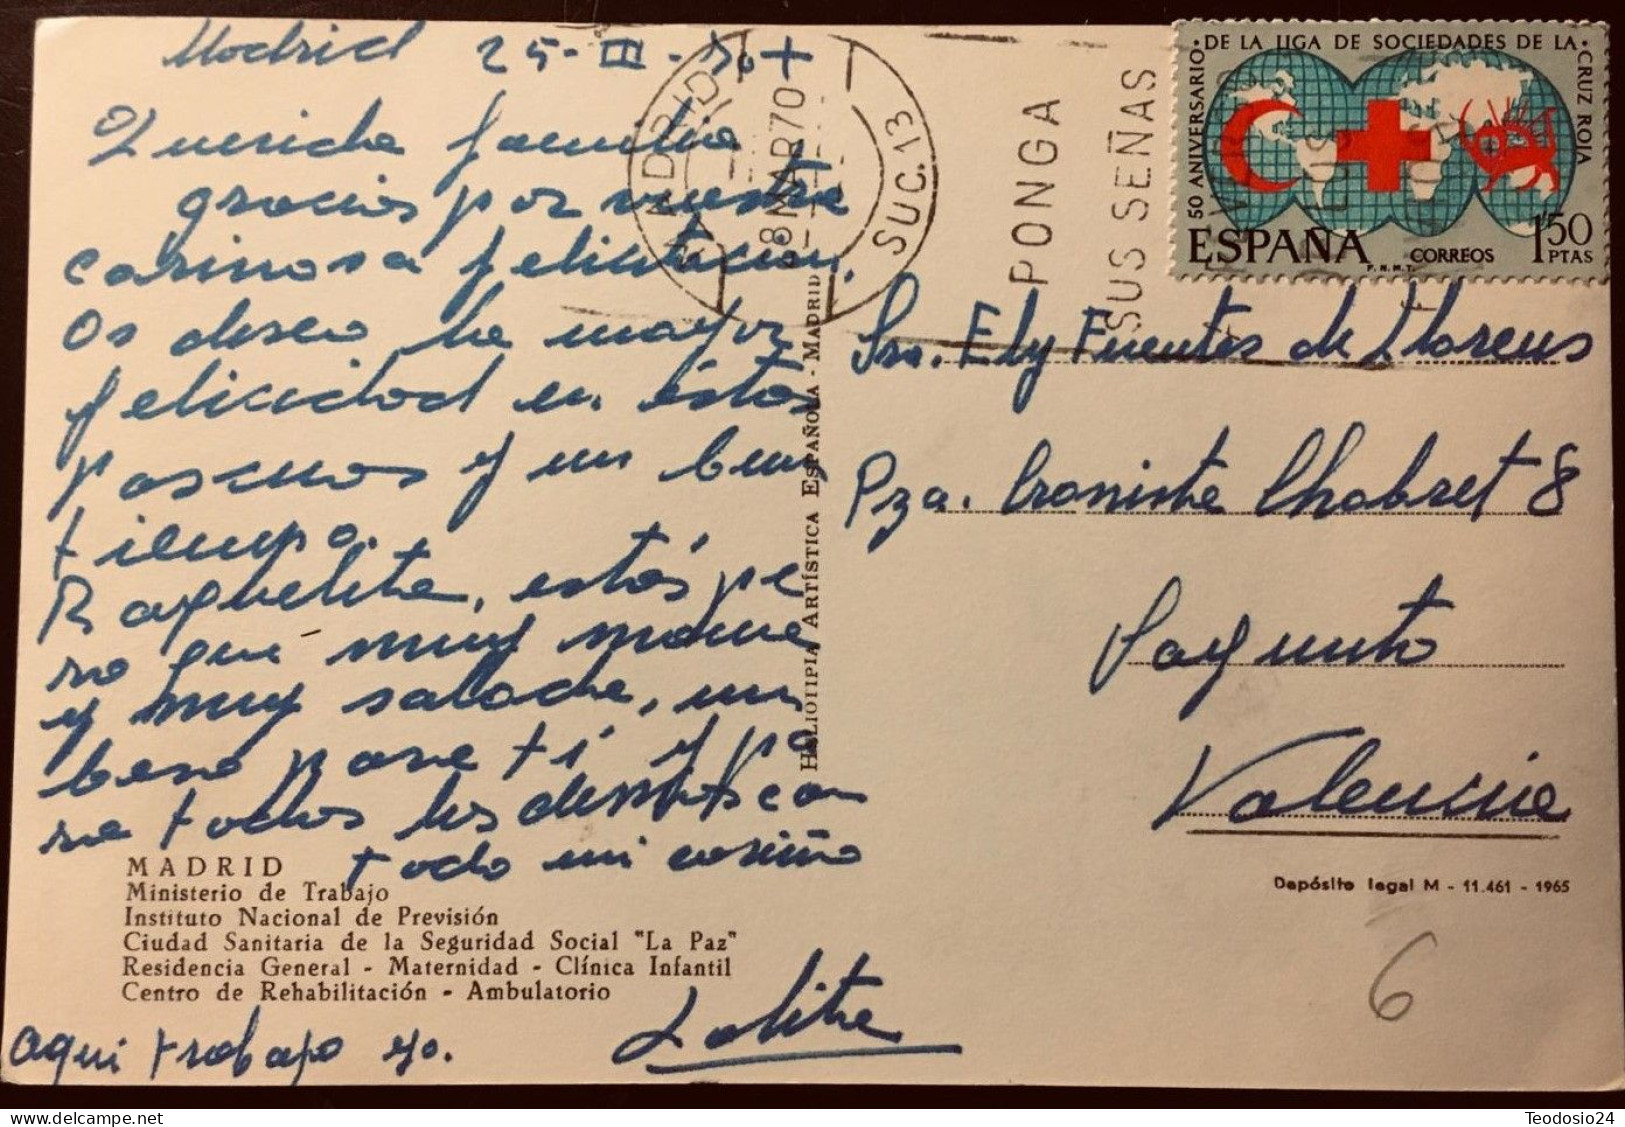 Madrid 25-III-70+
Querida familia:
gracias por vuestra
cariñosa felicitación,
Os deseo la mayor
felicidad en éstas
pascuas y un buen
tiempo.
Raquelita, estás pe
ro que muy mona
y muy salada, un
beso para ti y pa
ra todos los demás con
todo mi cariño
Lolita
aquí trabajo yo.
MADRID
Ministerio de Trabajo
Instituto Nacional de Previsión
Ciudad Sanitaria de la Seguridad Social "La Paz"
Residencia General - Maternidad - Clínica Infantil
Centro de Rehabilitación - Ambulatorio
HELIOTIPIA ARTÍSTICA ESPAÑOLA - MADRID
MADRID
28 MAR 70
SUC. 13
PONGA
SUS SEÑAS
50 ANIVERSARIO · DE LA LIGA DE SOCIEDADES DE LA · CRUZ ROJA
ESPAÑA
CORREOS
1'50
PTAS
F.N.M.T.
Sra. Ely Fuentes de Llorens
Pza. Cronista Chabret 8
Sagunto
Valencia
Depósito legal M - 11.461 - 1965
6
Teodosio24